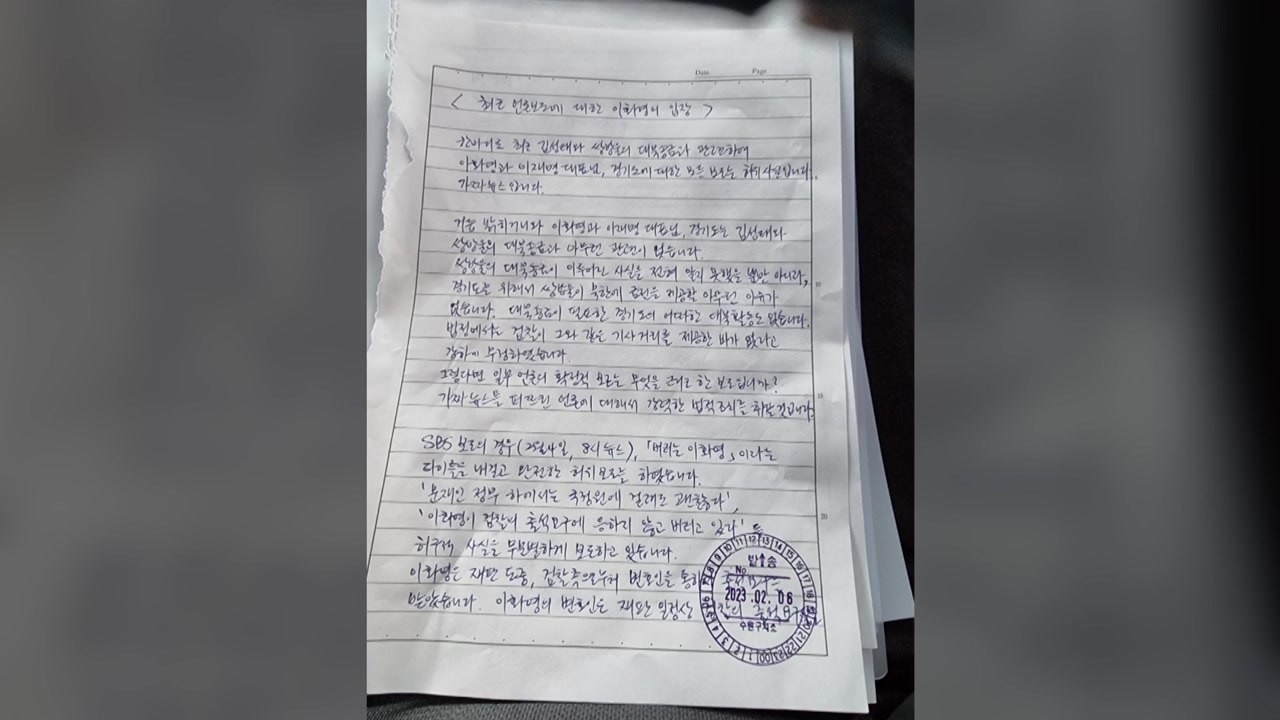 Date. Page.
< 최근 언론보도에 대한 이화영의 입장 >
한마디로 최근 김성태와 쌍방울의 대북송금과 관련하여
이화영과 이재명 대표님, 경기도에 대한 모든 보도는 허위사실입니다.
가짜뉴스입니다.
거듭 밝히거니와 이화영과 이재명 대표님, 경기도는 김성태와
쌍방울의 대북송금과 아무런 관련이 없습니다.
쌍방울의 대북송금이 이루어진 사실을 전혀 알지 못했을 뿐만 아니라,
경기도를 위해서 쌍방울이 북한에 금전을 제공할 아무런 이유가
없습니다. 대북송금이 필요한 경기도의 어떠한 대북활동도 없습니다.
법정에서는 검찰이 그와 같은 기사거리를 제공한 바가 없다고
강하게 부정하였습니다.
그렇다면 일부 언론의 확정적 보도는 무엇을 근거로 한 보도입니까?
가짜뉴스를 퍼뜨린 언론에 대해서 강력한 법적조치를 취할것입니다.
SBS 보도의 경우(2월4일, 8시뉴스), 「버티는 이화영」이라는
타이틀을 내걸고 완전한 허위보도를 하였습니다.
'문재인 정부 하에서는 국정원에 걸려도 괜찮다',
'이화영이 검찰의 출석요구에 응하지 않고 버티고 있다' 등
허구적 사실을 무분별하게 보도하고 있습니다.
이화영은 재판 도중, 검찰측으로부터 변호인을 통해
받았습니다. 이화영의 변호인은 재판 일정상 출석요구
발송
No
2023. 02. 06
수원구치소